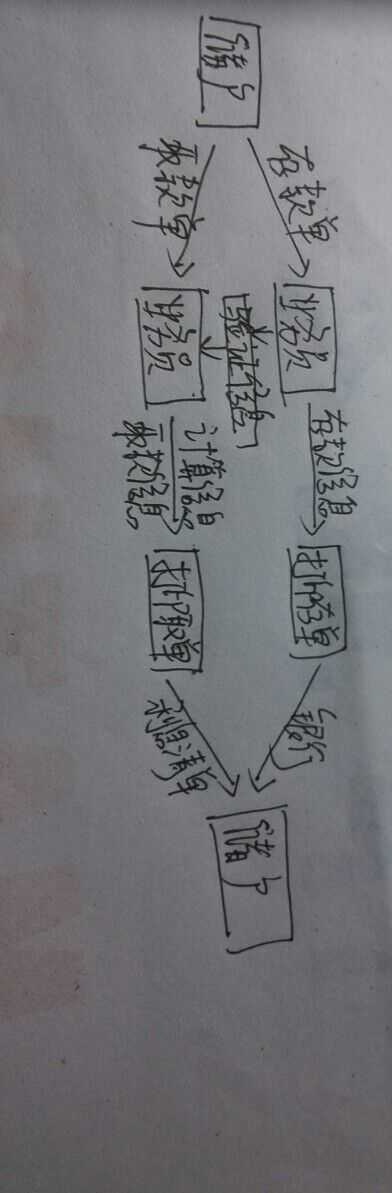 储户
存款单
业务员
存款信息
打印存单
银行
验证信息
取款单
业务员
计算信息
取款信息
打印取单
利息清单
储户